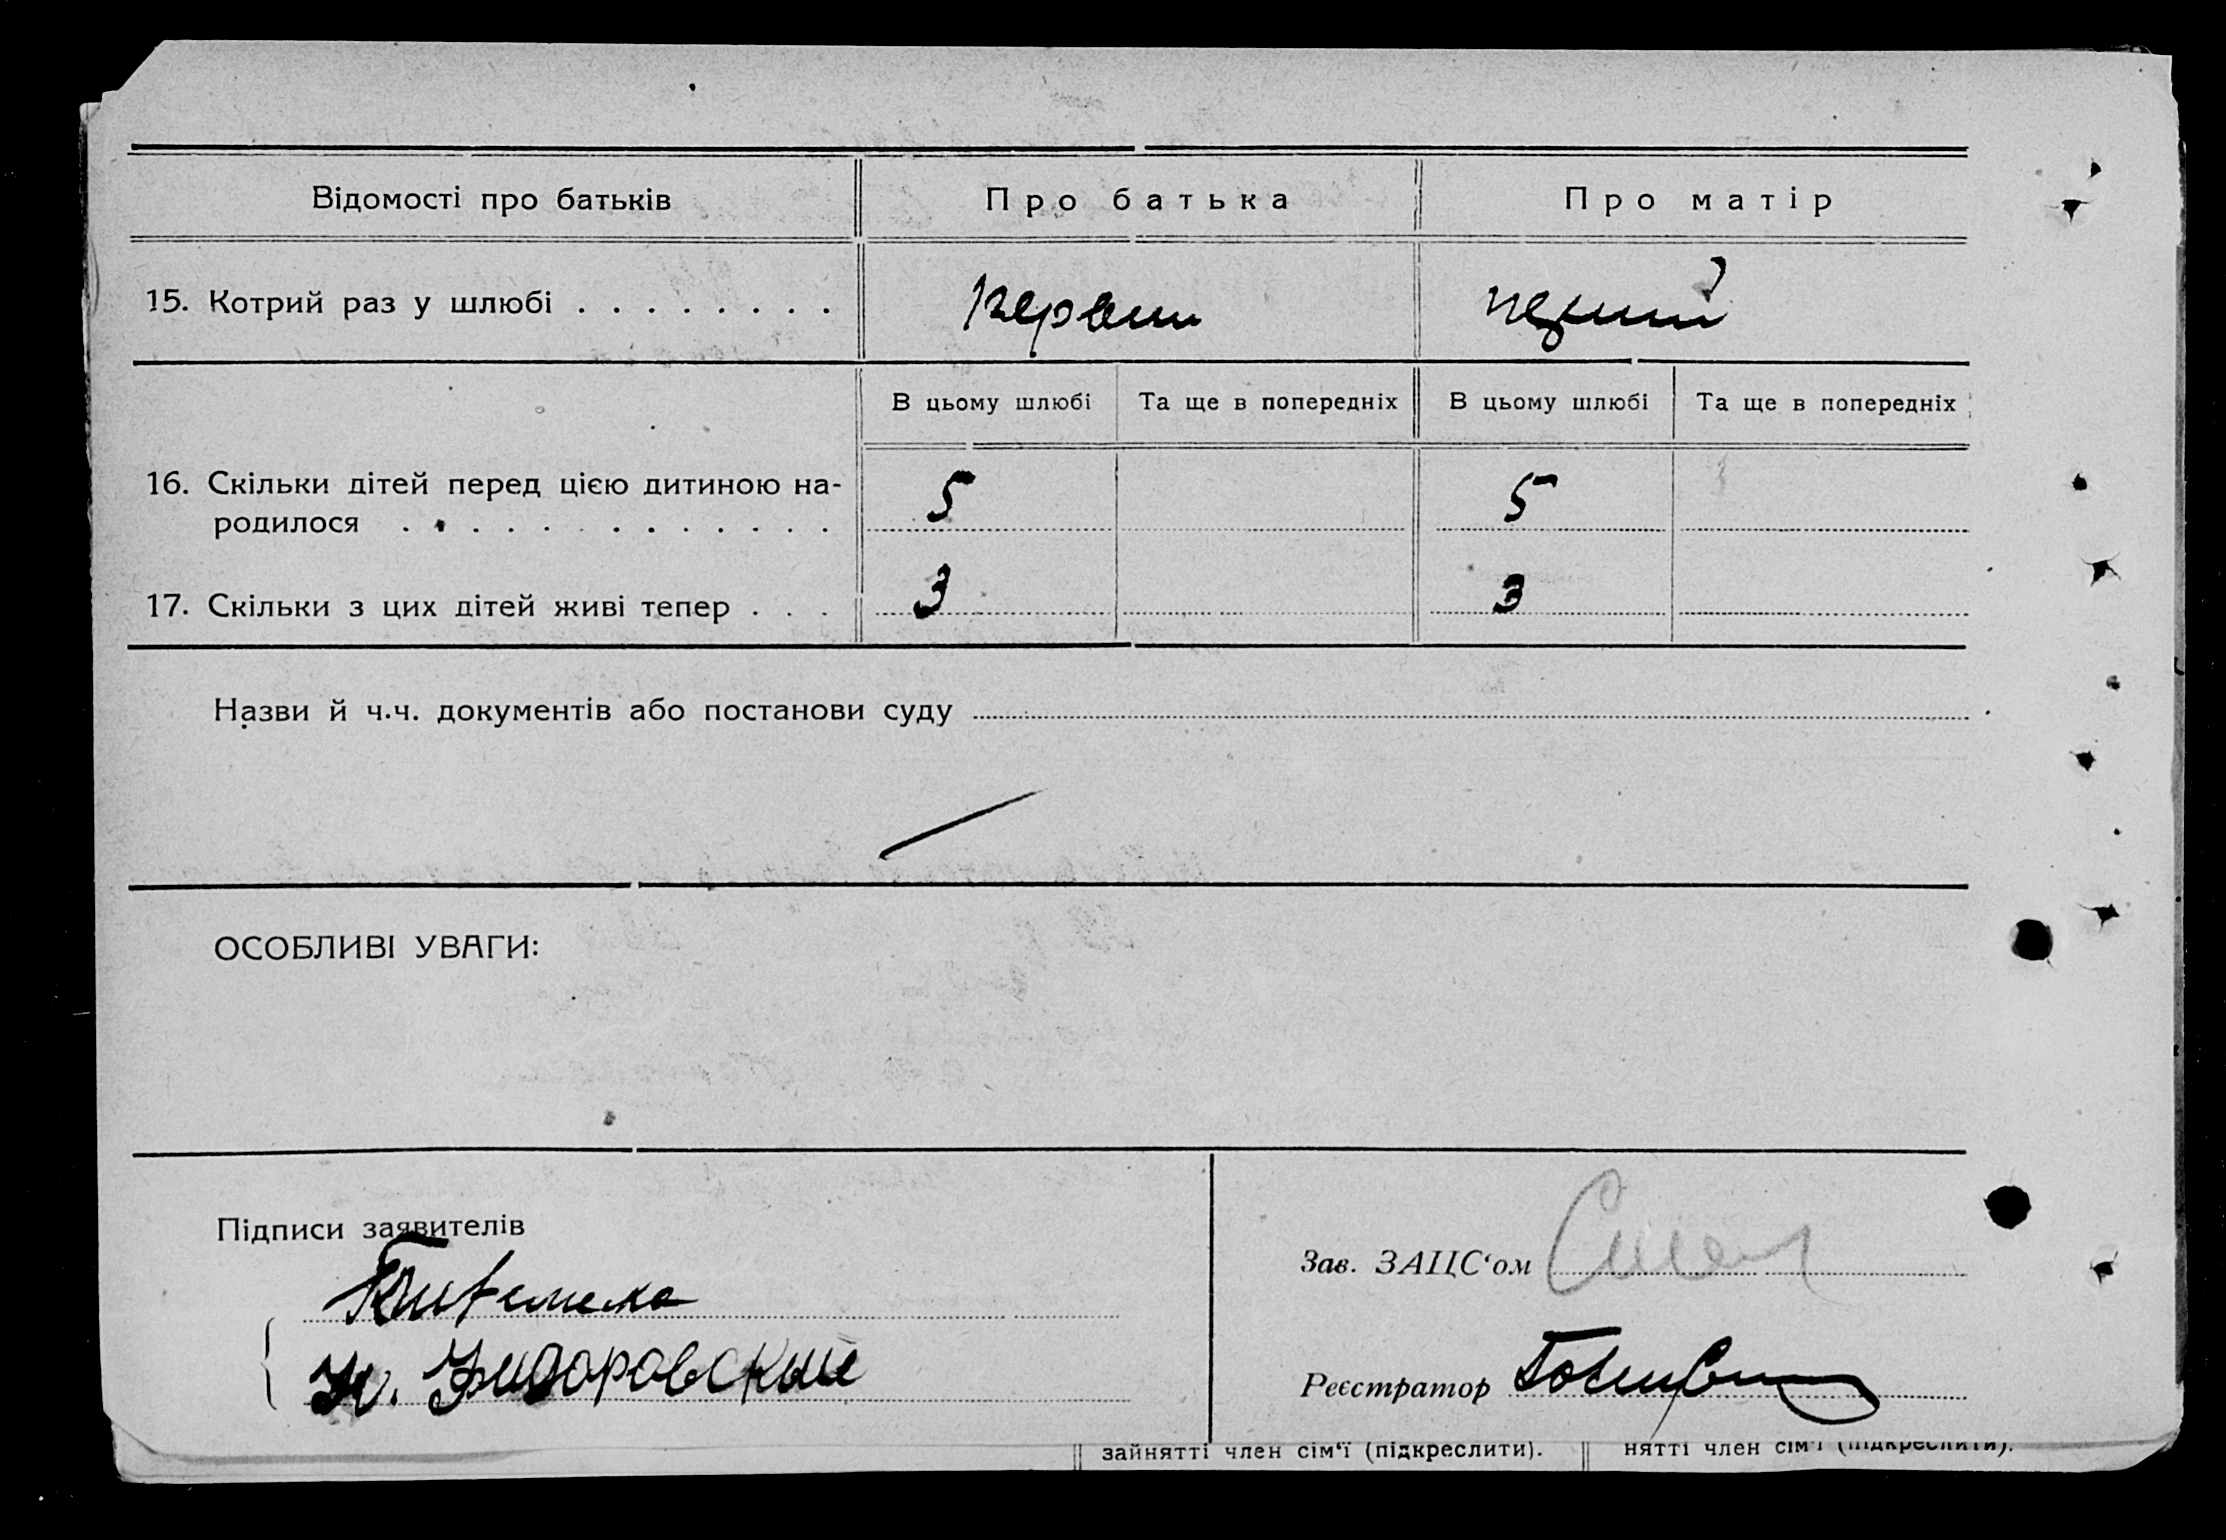 Відомості про батьків
Про батька
Про матір
15. Котрий раз у шлюбі . . . . . . . .
первий
В цьому шлюбі
Та ще в попередніх
В цьому шлюбі
Та ще в попередніх
16. Скільки дітей перед цією дитиною на-
родилося . . . . . . . . . . . . .
5
5
17. Скільки з цих дітей живі тепер . . .
3
3
Назви й ч.ч. документів або постанови суду
ОСОБЛИВІ УВАГИ:
Підписи заявителів
Зав. ЗАЦС‘ом
Реєстратор
зайнятті член сім‘ї (підкреслити).
нятті член сім‘ї (підкреслити).